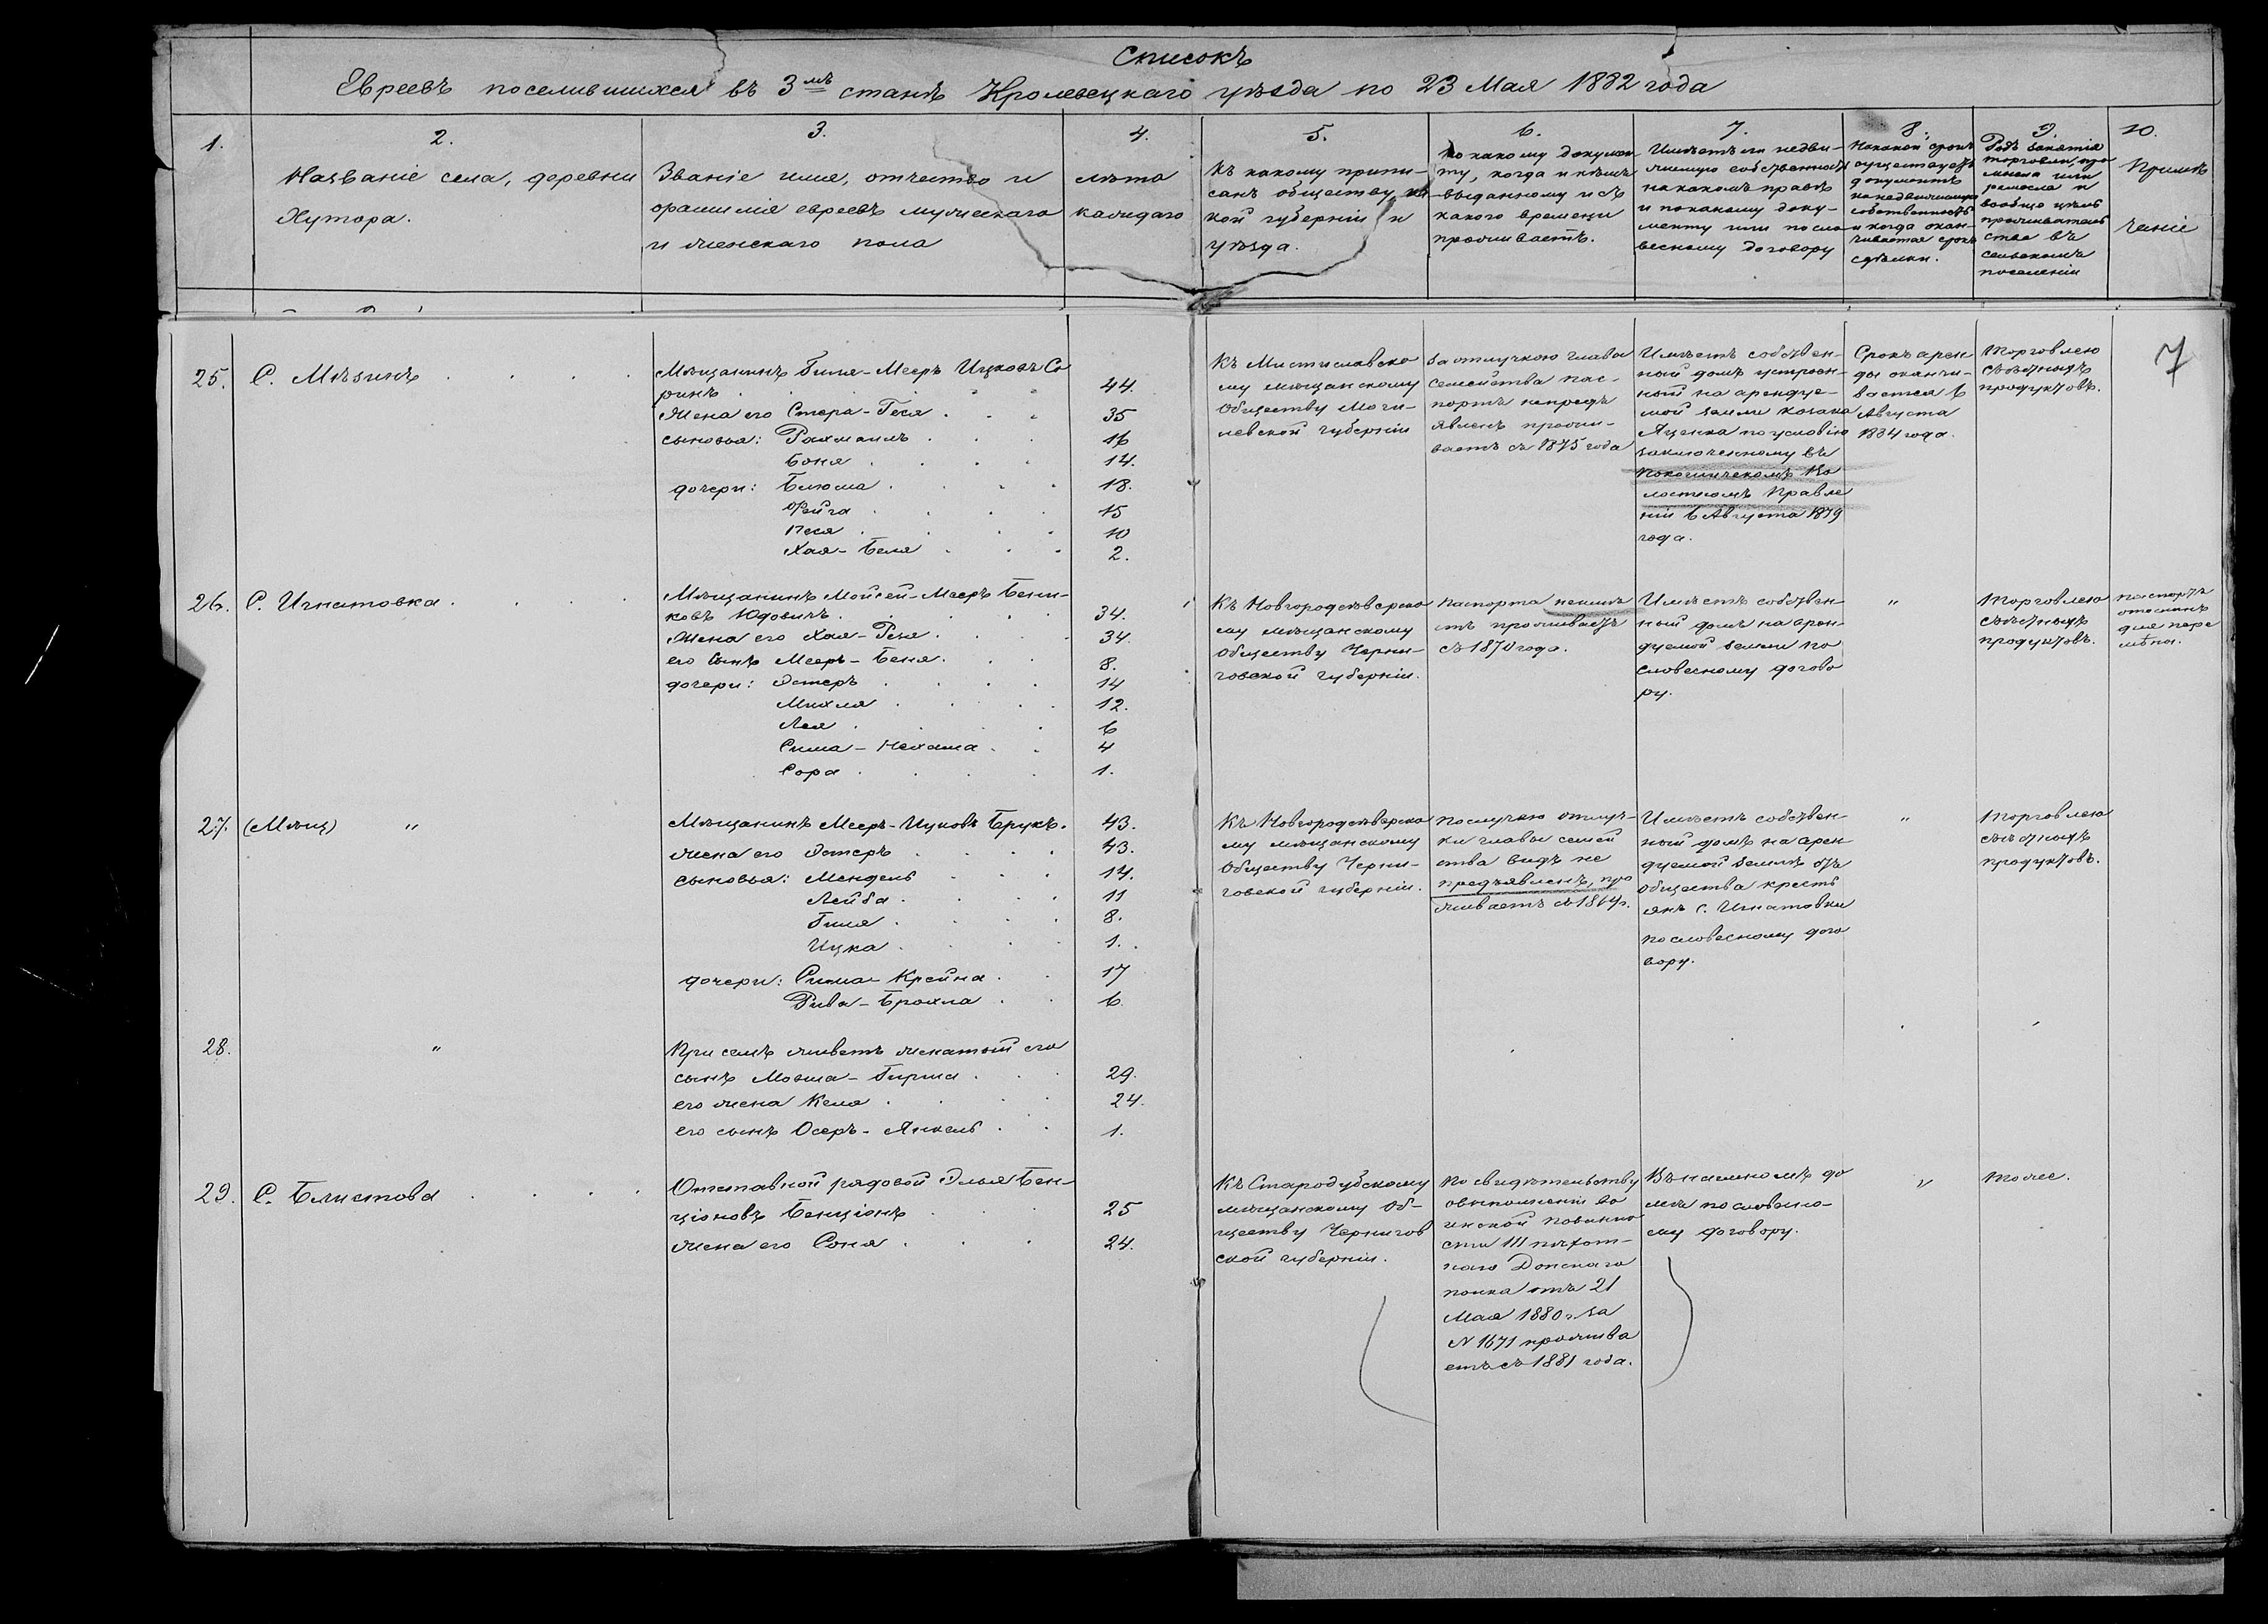 Списокъ
Евреевъ поселившихся въ 3мъ станѣ Кролевецкаго уѣзда по 23 Мая 1882 года
1.
2.
Названіе села, деревни
Хутора.
3.
Званіе имя, отчество и
фамилія евреевъ мужескаго
и женскаго пола
4.
лѣта
каждаго
5.
Къ какому припи-
санъ обществу, ка
кой губерніи и
уѣзда.
6.
по какому докумен
ту, когда и кѣмъ
выданному и съ
какого времени
проживаетъ.
7.
Имѣетъ ли недви-
жимую собственность
на какомъ правѣ
и по какому доку-
менту или по сло
весному договору
8.
На какой срокъ
существуетъ
документъ
на недвижимую
собственность
и когда окан-
чивается срокъ
сдѣлки.
9.
Родъ занятія
торговли, про
мысла или
ремесла и
вообще цѣль
жительства въ
сельскомъ
поселеніи
10.
Примѣ
чаніе
7
25.
С. Мѣзинъ
Мѣщанинъ Гиля-Мееръ Ицковъ Со
ринъ 44.
Жена его Стера-Геся 35
сыновья: Рахмаилъ 16
Боня 14.
дочери: Блюма 18.
Фейга 15
Песя 10
Хая-Беля 2.
Къ Мистиславско
му мѣщанскому
Обществу Моги-
левской губерніи
За отлучкою главы
семейства пас-
портъ непредъ
явленъ прожи-
ваетъ съ 1875 года
Имѣетъ собствен-
ный домъ устроен-
ный на арендуе-
мой земли козака
Яценка по условію
заключенному въ
Покошическомъ Во
лостномъ Правле
ніи 6 Августа 1879
года.
Срокъ арен
ды оканчи-
вается 6
Августа
1884 года.
Торговлею
съѣстныхъ
продуктовъ.
26.
С. Игнатовка
Мѣщанинъ Мойсей-Мееръ Бени-
ковъ Юдовичъ 34.
Жена его Хая-Геня 34.
его Сынъ Мееръ-Беня 8.
дочери: Эстеръ 14
Михля 12.
Лея 6
Сима-Нехама 4
Сора 1.
Къ Новгородсѣверско
му мѣщанскому
Обществу Черни-
говской губерніи.
Паспорта неимѣ
етъ проживаетъ
съ 1870 года.
Имѣетъ собствен-
ный домъ на арен-
дуемой земли по
словесному догово
ру.
"
Торговлею
съѣстныхъ
продуктовъ.
паспортъ
отосланъ
для пере
мѣна.
27.
"
Мѣщанинъ Мееръ-Ицковъ Брукъ. 43.
жена его Эстеръ 43.
сыновья: Мендель 14.
Лейба 11
Гиля 8.
Ицка 1.
дочери: Сима-Крейна 17
Рива-Брохма 6
Къ Новгородсѣверско
му мѣщанскому
Обществу Черни-
говской губерніи.
По случаю отлуч-
ки главы семей
ства видъ не
предъявленъ, про
живаетъ съ 1864 г.
Имѣетъ собствен-
ный домъ на арен
дуемой землѣ отъ
Общества кресть
янъ с. Игнатовки
по словесному дого
вору.
"
Торговлею
съѣстныхъ
продуктовъ.
28.
"
При семъ живетъ женатый его
сынъ Мовша-Гирша 29.
его жена Кела 24.
его сынъ Осеръ-Янкель 1.
29.
С. Блистова
Отставной рядовой Элья Бен-
ціоновъ Бенціонъ 25
жена его Соня 24.
Къ Стародубскому
мѣщанскому Об-
ществу Чернигов
ской губерніи.
По свидѣтельству
о выполненіи во
инской повинно
сти 111 пѣхот-
наго Донскаго
полка отъ 21
Мая 1880 г. за
N 1671 прожива
етъ съ 1881 года.
Въ наемномъ до
мѣ по словесно-
му договору.
"
Тоже.